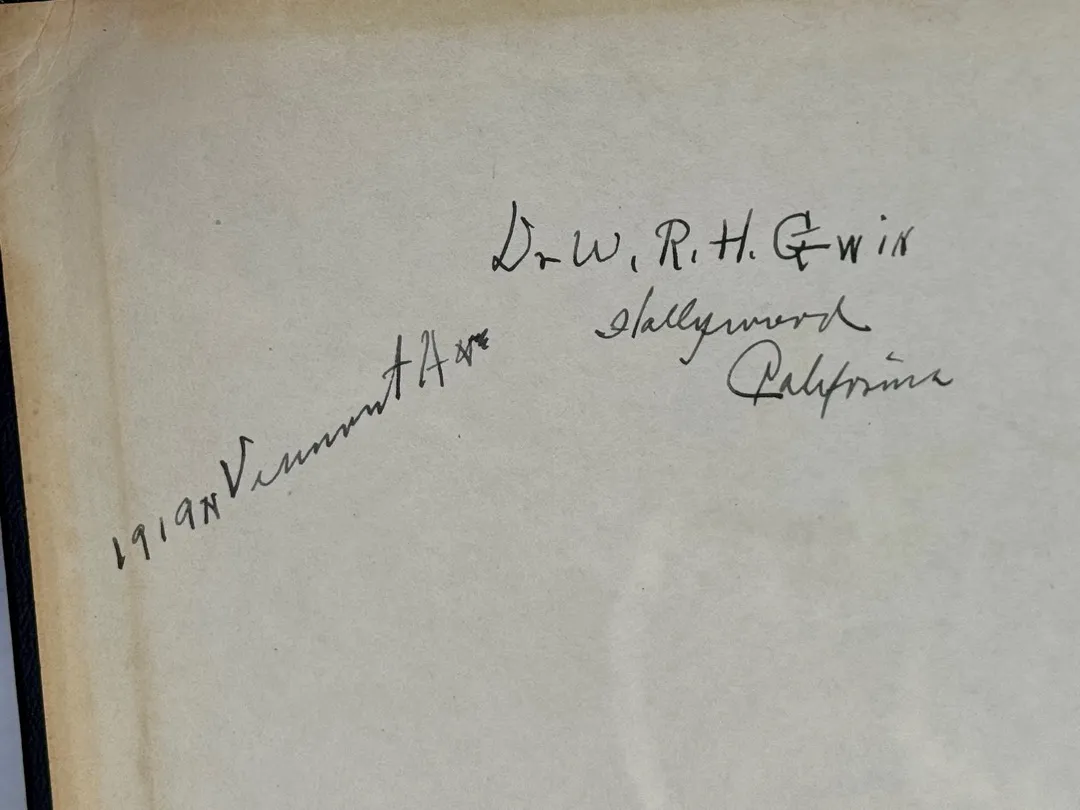 Dr W. R. H. Gwin
Hollywood
California
1919 N Vermont Ave